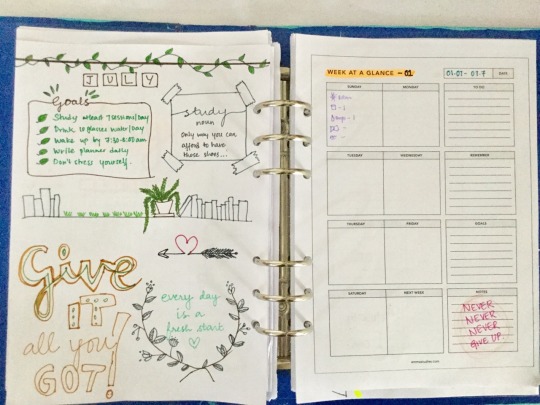 JULY
Goals
Study atleast 7 sessions/day
Drink 10 glasses water/day
Wake up by 7:30-8:00am
Write planner daily
Don't stress yourself.
study
noun
Only way you can
afford to have
those shoes...
Give
IT
all you
GOT!
every day
is a
fresh start
WEEK AT A GLANCE - 01
01.07 - 07.7
DATE
SUNDAY
MONDAY
TO DO
TUESDAY
WEDNESDAY
REMEMBER
THURSDAY
FRIDAY
GOALS
SATURDAY
NEXT WEEK
NOTES
NEVER
NEVER
NEVER
GIVE UP.